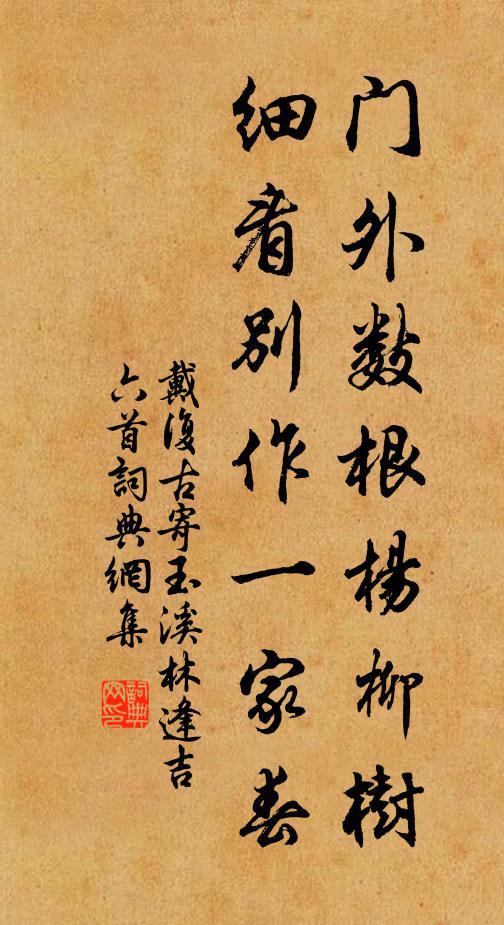 门外数根楊柳樹
细看别作一家春
戴復古寄玉溪林逢吉
六首詞典網集
詞典
网印